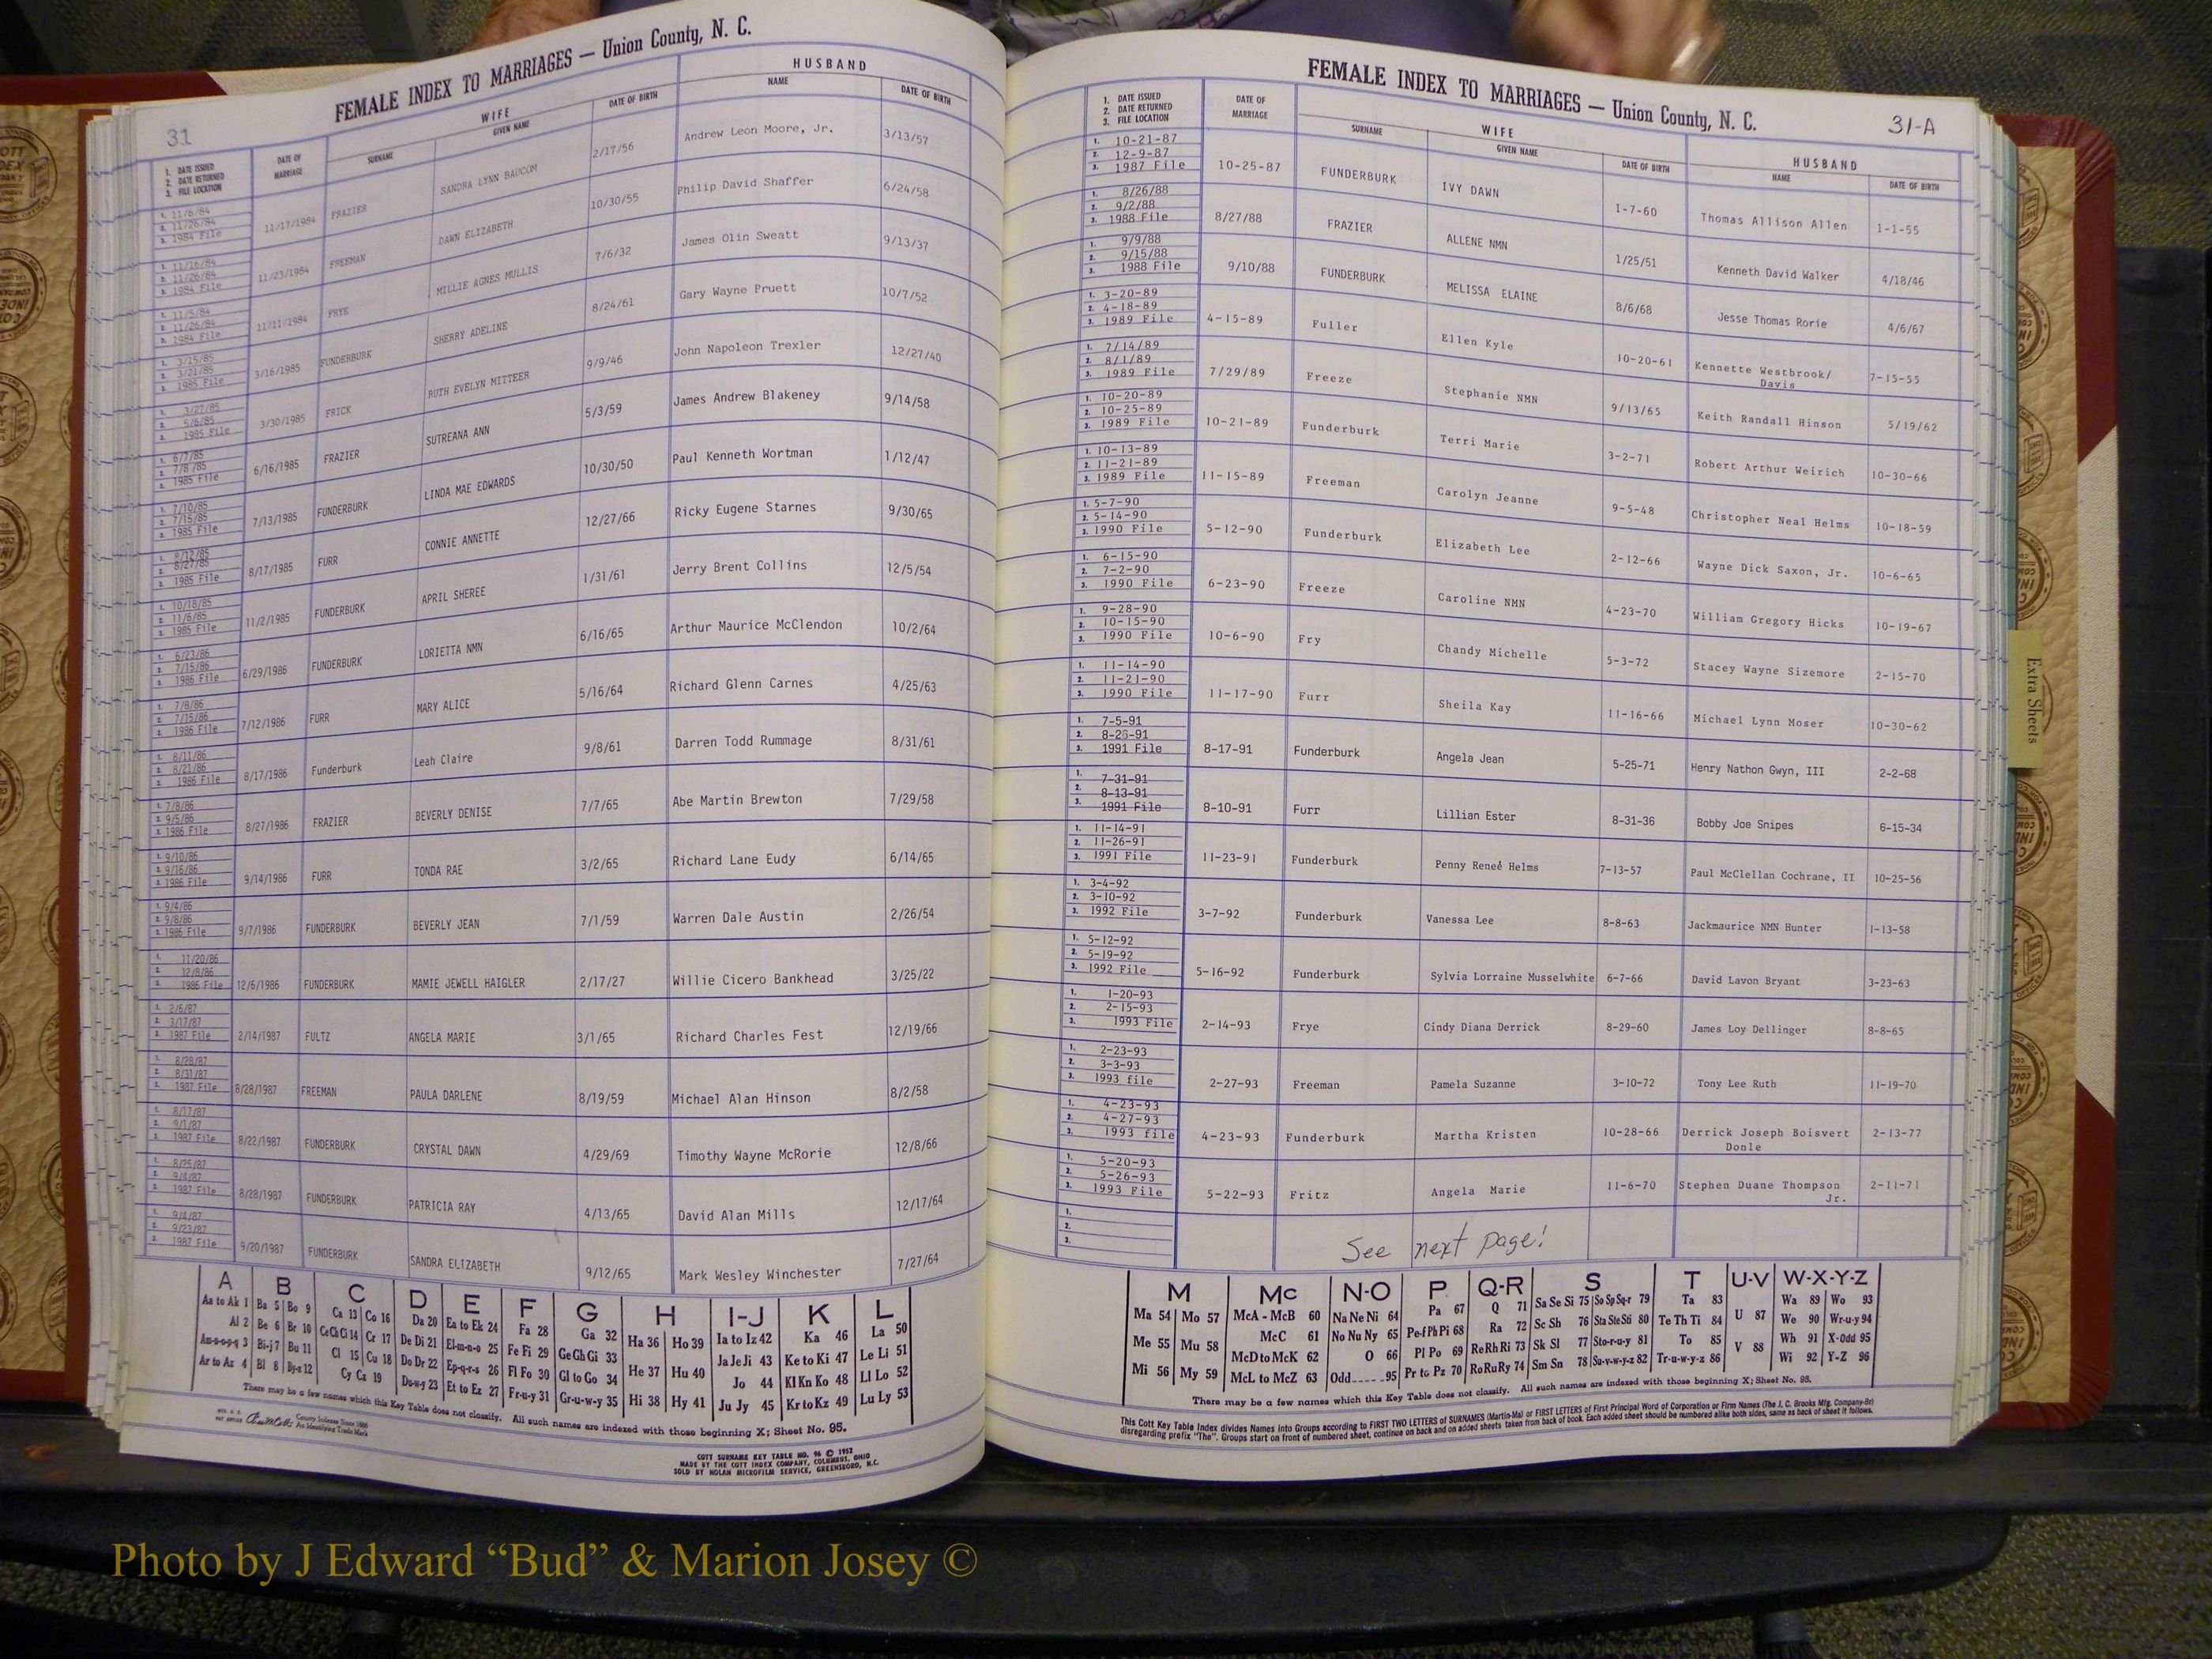 FEMALE INDEX TO MARRIAGES — Union County, N. C.
31
1. DATE ISSUED 2. DATE RETURNED 3. FILE LOCATION | DATE OF MARRIAGE | WIFE SURNAME | GIVEN NAME | DATE OF BIRTH | HUSBAND NAME | DATE OF BIRTH
1. 11/6/84 2. 11/26/84 3. 1984 File 11/17/1984 FRAZIER SANDRA LYNN BAUCOM 2/17/56 Andrew Leon Moore, Jr. 3/13/57
1. 11/16/84 2. 11/26/84 3. 1984 File 11/23/1984 FREEMAN DAWN ELIZABETH 10/30/55 Philip David Shaffer 6/24/58
1. 11/5/84 2. 11/26/84 3. 1984 File 11/11/1984 FRYE MILLIE AGNES MULLIS 7/6/32 James Olin Sweatt 9/13/37
1. 3/15/85 2. 3/21/85 3. 1985 File 3/16/1985 FUNDERBURK SHERRY ADELINE 8/24/61 Gary Wayne Pruett 10/7/52
1. 3/27/85 2. 5/6/85 3. 1985 File 3/30/1985 FRICK RUTH EVELYN MITTEER 9/9/46 John Napoleon Trexler 12/27/40
1. 6/7/85 2. 7/8/85 3. 1985 File 6/16/1985 FRAZIER SUTREANA ANN 5/3/59 James Andrew Blakeney 9/14/58
1. 7/10/85 2. 7/15/85 3. 1985 File 7/13/1985 FUNDERBURK LINDA MAE EDWARDS 10/30/50 Paul Kenneth Wortman 1/12/47
1. 8/12/85 2. 8/27/85 3. 1985 File 8/17/1985 FURR CONNIE ANNETTE 12/27/66 Ricky Eugene Starnes 9/30/65
1. 10/18/85 2. 11/6/85 3. 1985 File 11/2/1985 FUNDERBURK APRIL SHEREE 1/31/61 Jerry Brent Collins 12/5/54
1. 6/23/86 2. 7/15/86 3. 1986 File 6/29/1986 FUNDERBURK LORIETTA NMN 6/16/65 Arthur Maurice McClendon 10/2/64
1. 7/8/86 2. 7/15/86 3. 1986 File 7/12/1986 FURR MARY ALICE 5/16/64 Richard Glenn Carnes 4/25/63
1. 8/11/86 2. 8/21/86 3. 1986 File 8/17/1986 Funderburk Leah Claire 9/8/61 Darren Todd Rummage 8/31/61
1. 7/8/86 2. 9/5/86 3. 1986 File 8/27/1986 FRAZIER BEVERLY DENISE 7/7/65 Abe Martin Brewton 7/29/58
1. 9/10/86 2. 9/16/86 3. 1986 File 9/14/1986 FURR TONDA RAE 3/2/65 Richard Lane Eudy 6/14/65
1. 9/4/86 2. 9/8/86 3. 1986 File 9/7/1986 FUNDERBURK BEVERLY JEAN 7/1/59 Warren Dale Austin 2/26/54
1. 11/20/86 2. 12/8/86 3. 1986 File 12/6/1986 FUNDERBURK MAMIE JEWELL HAIGLER 2/17/27 Willie Cicero Bankhead 3/25/22
1. 2/6/87 2. 3/17/87 3. 1987 File 2/14/1987 FULTZ ANGELA MARIE 3/1/65 Richard Charles Fest 12/19/66
1. 8/28/87 2. 8/31/87 3. 1987 File 8/28/1987 FREEMAN PAULA DARLENE 8/19/59 Michael Alan Hinson 8/2/58
1. 8/17/87 2. 9/1/87 3. 1987 File 8/22/1987 FUNDERBURK CRYSTAL DAWN 4/29/69 Timothy Wayne McRorie 12/8/66
1. 8/25/87 2. 9/4/87 3. 1987 File 8/28/1987 FUNDERBURK PATRICIA RAY 4/13/65 David Alan Mills 12/17/64
1. 9/4/87 2. 9/23/87 3. 1987 File 9/20/1987 FUNDERBURK SANDRA ELIZABETH 9/12/65 Mark Wesley Winchester 7/27/64
A B C D E F G H I-J K L
Aa to Ak 1 Ba 5 Bo 9 Ca 13 Co 16 Da 20 Ea to Ek 24 Fa 28 Ga 32 Ha 36 Ho 39 Ia to Iz 42 Ka 46 La 50
Al 2 Be 6 Br 10 Ce Ch Ci 14 Cr 17 De Di 21 El-m-n-o 25 Fe Fi 29 Ge Gh Gi 33 He 37 Hu 40 Ja Je Ji 43 Ke to Ki 47 Le Li 51
Am-n-o-p-q 3 Bi-j 7 Bu 11 Cl 15 Cu 18 Do Dr 22 Ep-q-r-s 26 Fl Fo 30 Gl to Go 34 Jo 44 Kl Kn Ko 48 Ll Lo 52
Ar to Az 4 Bl 8 By-z 12 Cy Cz 19 Du-w-y 23 Et to Ez 27 Fr-u-y 31 Gr-u-w-y 35 Hi 38 Hy 41 Ju Jy 45 Kr to Kz 49 Lu Ly 53
There may be a few names which this Key Table does not classify. All such names are indexed with those beginning X; Sheet No. 95.
County Indexes Since 1888
An Identifying Trade Mark
COTT SURNAME KEY TABLE NO. 96 © 1952
MADE BY THE COTT INDEX COMPANY, COLUMBUS, OHIO
SOLD BY NOLAN MICROFILM SERVICE, GREENSBORO, N.C.
FEMALE INDEX TO MARRIAGES — Union County, N. C.
31-A
1. DATE ISSUED 2. DATE RETURNED 3. FILE LOCATION | DATE OF MARRIAGE | WIFE SURNAME | GIVEN NAME | DATE OF BIRTH | HUSBAND NAME | DATE OF BIRTH
1. 10-21-87 2. 12-9-87 3. 1987 File 10-25-87 FUNDERBURK IVY DAWN 1-7-60 Thomas Allison Allen 1-1-55
1. 8/26/88 2. 9/2/88 3. 1988 File 8/27/88 FRAZIER ALLENE NMN 1/25/51 Kenneth David Walker 4/18/46
1. 9/9/88 2. 9/15/88 3. 1988 File 9/10/88 FUNDERBURK MELISSA ELAINE 8/6/68 Jesse Thomas Rorie 4/6/67
1. 3-20-89 2. 4-18-89 3. 1989 File 4-15-89 Fuller Ellen Kyle 10-20-61 Kennette Westbrook/ Davis 7-15-55
1. 7/14/89 2. 8/1/89 3. 1989 File 7/29/89 Freeze Stephanie NMN 9/13/65 Keith Randall Hinson 5/19/62
1. 10-20-89 2. 10-25-89 3. 1989 File 10-21-89 Funderburk Terri Marie 3-2-71 Robert Arthur Weirich 10-30-66
1. 10-13-89 2. 11-21-89 3. 1989 File 11-15-89 Freeman Carolyn Jeanne 9-5-48 Christopher Neal Helms 10-18-59
1. 5-7-90 2. 5-14-90 3. 1990 File 5-12-90 Funderburk Elizabeth Lee 2-12-66 Wayne Dick Saxon, Jr. 10-6-65
1. 6-15-90 2. 7-2-90 3. 1990 File 6-23-90 Freeze Caroline NMN 4-23-70 William Gregory Hicks 10-19-67
1. 9-28-90 2. 10-15-90 3. 1990 File 10-6-90 Fry Chandy Michelle 5-3-72 Stacey Wayne Sizemore 2-15-70
1. 11-14-90 2. 11-21-90 3. 1990 File 11-17-90 Furr Sheila Kay 11-16-66 Michael Lynn Moser 10-30-62
1. 7-5-91 2. 8-26-91 3. 1991 File 8-17-91 Funderburk Angela Jean 5-25-71 Henry Nathon Gwyn, III 2-2-68
1. 7-31-91 2. 8-13-91 3. 1991 File 8-10-91 Furr Lillian Ester 8-31-36 Bobby Joe Snipes 6-15-34
1. 11-14-91 2. 11-26-91 3. 1991 File 11-23-91 Funderburk Penny Reneé Helms 7-13-57 Paul McClellan Cochrane, II 10-25-56
1. 3-4-92 2. 3-10-92 3. 1992 File 3-7-92 Funderburk Vanessa Lee 8-8-63 Jackmaurice NMN Hunter 1-13-58
1. 5-12-92 2. 5-19-92 3. 1992 File 5-16-92 Funderburk Sylvia Lorraine Musselwhite 6-7-66 David Lavon Bryant 3-23-63
1. 1-20-93 2. 2-15-93 3. 1993 File 2-14-93 Frye Cindy Diana Derrick 8-29-60 James Loy Dellinger 8-8-65
1. 2-23-93 2. 3-3-93 3. 1993 file 2-27-93 Freeman Pamela Suzanne 3-10-72 Tony Lee Ruth 11-19-70
1. 4-23-93 2. 4-27-93 3. 1993 file 4-23-93 Funderburk Martha Kristen 10-28-66 Derrick Joseph Boisvert Donle 2-13-77
1. 5-20-93 2. 5-26-93 3. 1993 File 5-22-93 Fritz Angela Marie 11-6-70 Stephen Duane Thompson Jr. 2-11-71
1. 2. 3.
See next page!
M Mc N-O P Q-R S T U-V W-X-Y-Z
Ma 54 Mo 57 McA - McB 60 Na Ne Ni 64 Pa 67 Q 71 Sa Se Si 75 So Sp Sq-r 79 Ta 83 U 87 Wa 89 Wo 93
Me 55 Mu 58 McC 61 No Nu Ny 65 Pe-f Ph Pi 68 Ra 72 Sc Sh 76 Sta Ste Sti 80 Te Th Ti 84 We 90 Wr-u-y 94
McD to McK 62 O 66 Pl Po 69 Re Rh Ri 73 Sk Sl 77 Sto-r-u-y 81 To 85 V 88 Wh 91 X-Odd 95
Mi 56 My 59 McL to McZ 63 Odd 95 Pr to Pz 70 Ro Ru Ry 74 Sm Sn 78 Su-v-w-y-z 82 Tr-u-w-y-z 86 Wi 92 Y-Z 96
There may be a few names which this Key Table does not classify. All such names are indexed with those beginning X; Sheet No. 95.
This Cott Key Table Index divides Names into Groups according to FIRST TWO LETTERS of SURNAMES (Martin-Ma) or FIRST LETTERS of First Principal Word of Corporation or Firm Names (The J. C. Brooks Mfg. Company-Br)
disregarding prefix "The". Groups start on front of numbered sheet, continue on back and on added sheets taken from back of book. Each added sheet should be numbered alike both sides, same as back of sheet it follows.
Extra Sheets
Photo by J Edward “Bud” & Marion Josey ©